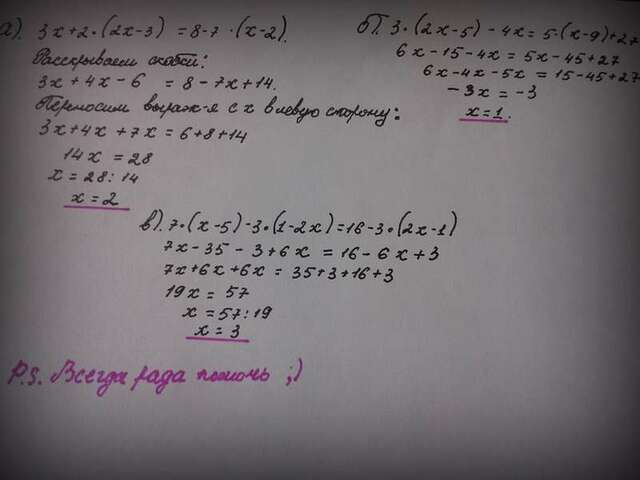 а). 3x+2·(2x-3) = 8-7·(x-2).
Расскрываем скобки:
3x+4x-6 = 8-7x+14.
Переносим выраж-я с x в левую сторону:
3x+4x+7x=6+8+14
14x = 28
x = 28:14
x = 2
б). 3·(2x-5)-4x=5·(x-9)+27
6x-15-4x=5x-45+27
6x-4x-5x=15-45+27
-3x=-3
x=1.
в). 7·(x-5)-3·(1-2x)=16-3·(2x-1)
7x-35-3+6x = 16-6x+3
7x+6x+6x = 35+3+16+3
19x = 57
x = 57:19
x = 3
P.S. Всегда рада помочь ;)